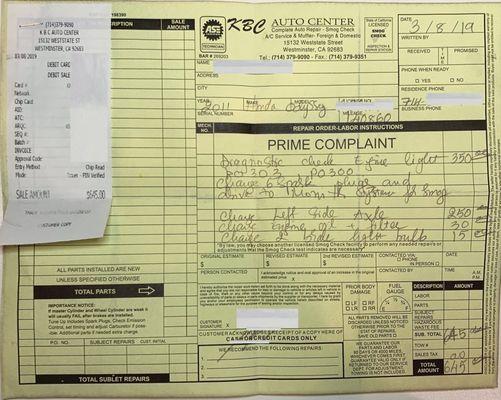 (714)379-9090
K B C AUTO CENTER
15132 WESTSTATE ST
WESTMINSTER, CA 92683
03/08/2019
DEBIT CARD
DEBIT SALE
Card #
Network
Chip Card
AID:
ATC:
ARQC:
SEQ #:
Batch #
INVOICE
Approval Code:
Entry Method: Chip Read
Mode: Issuer - PIN Verified
SALE AMOUNT $645.00
CUSTOMER COPY
DESCRIPTION
SALE AMOUNT
ALL PARTS INSTALLED ARE NEW
UNLESS SPECIFIED OTHERWISE
TOTAL PARTS
IMPORTANCE NOTICE:
If master Cylinder and Wheel Cylinder are weak it
will usually FAIL after brakes are installed.
Tune Up includes Spark Plugs, Check Emission
Control, set timing and adjust Carburetor if possi-
ble. Additional parts if needed extra charge.
P.O. NO.
SUBJECT REPAIRS
CUST. INITIAL
TOTAL SUBLET REPAIRS
ASE
TECHNICIAN
KBC AUTO CENTER
Complete Auto Repair - Smog Check
A/C Service & Muffler- Foreign & Domestic
15132 Weststate Street
Westminster, CA 92683
Tel.: (714) 379-9090 - Fax: (714) 379-9351
State of California
LICENSED
SMOG
CHECK
INSPECTION & REPAIR
STATION
DATE 3/8/19
WRITTEN BY
RECEIVED
TIME
A.M.
P.M.
PHONE WHEN READY
YES NO
RESIDENCE PHONE
BUSINESS PHONE
NAME
ADDRESS
CITY
YEAR 2011 MAKE Honda
SERIAL NUMBER
140860
MECH. NO.
REPAIR ORDER-LABOR INSTRUCTIONS
PRIME COMPLAINT
Diagnostic check Engine light 350
P0303 P0300
Change 6 spark plugs and
drive to Moni the system for smog
Change Left Side Axle 250
Change engine oil + filter 30
Change R side light bulb 15
"By law, you may choose another licensed Smog Check facility to perform any needed repairs or
adjustments that Smog Check test indicates are necessary."
ORIGINAL ESTIMATE
REVISED ESTIMATE
2nd REVISED ESTIMATE
CONTACTED VIA:
PHONE
IN PERSON
PERSON CONTACTED
I acknowledge notice and oral approval of an increase in the original estimated price.
CONTACTED BY
DATE
TIME A.M. P.M.
CUSTOMER SIGNATURE X
CUSTOMER ACKNOWLEDGES RECEIPT OF A COPY HERE OF
CASH OR CREDIT CARDS ONLY
WE RECOMMEND THE FOLLOWING REPAIRS.
1.
2.
3.
PRIOR BODY DAMAGE
LF RF
LR RR
FUEL GAUGE
DESCRIPTION
AMOUNT
LABOR
PARTS
SUBLET REPAIRS
HAZARDOUS WASTE FEE
SUB. TOTAL 645
TOW #
SALES TAX
TOTAL AMOUNT 645
ALL PARTS REMOVED WILL BE
DISCARDED UNLESS INSTRUCTED
OTHERWISE PRIOR TO THE
START OF REPAIRS.
SAVE OLD PARTS
WE GUARANTEE OUR
REPAIRS PARTS & LABOR
90 DAYS OR 4000 MILES,
WHICHEVER COMES FIRST.
GUARANTEE VALID ONLY IF
RETURNED TO OUR SERVICE
DEPT. FOR ADJUSTMENT.
TOWING IS NOT INCLUDED.